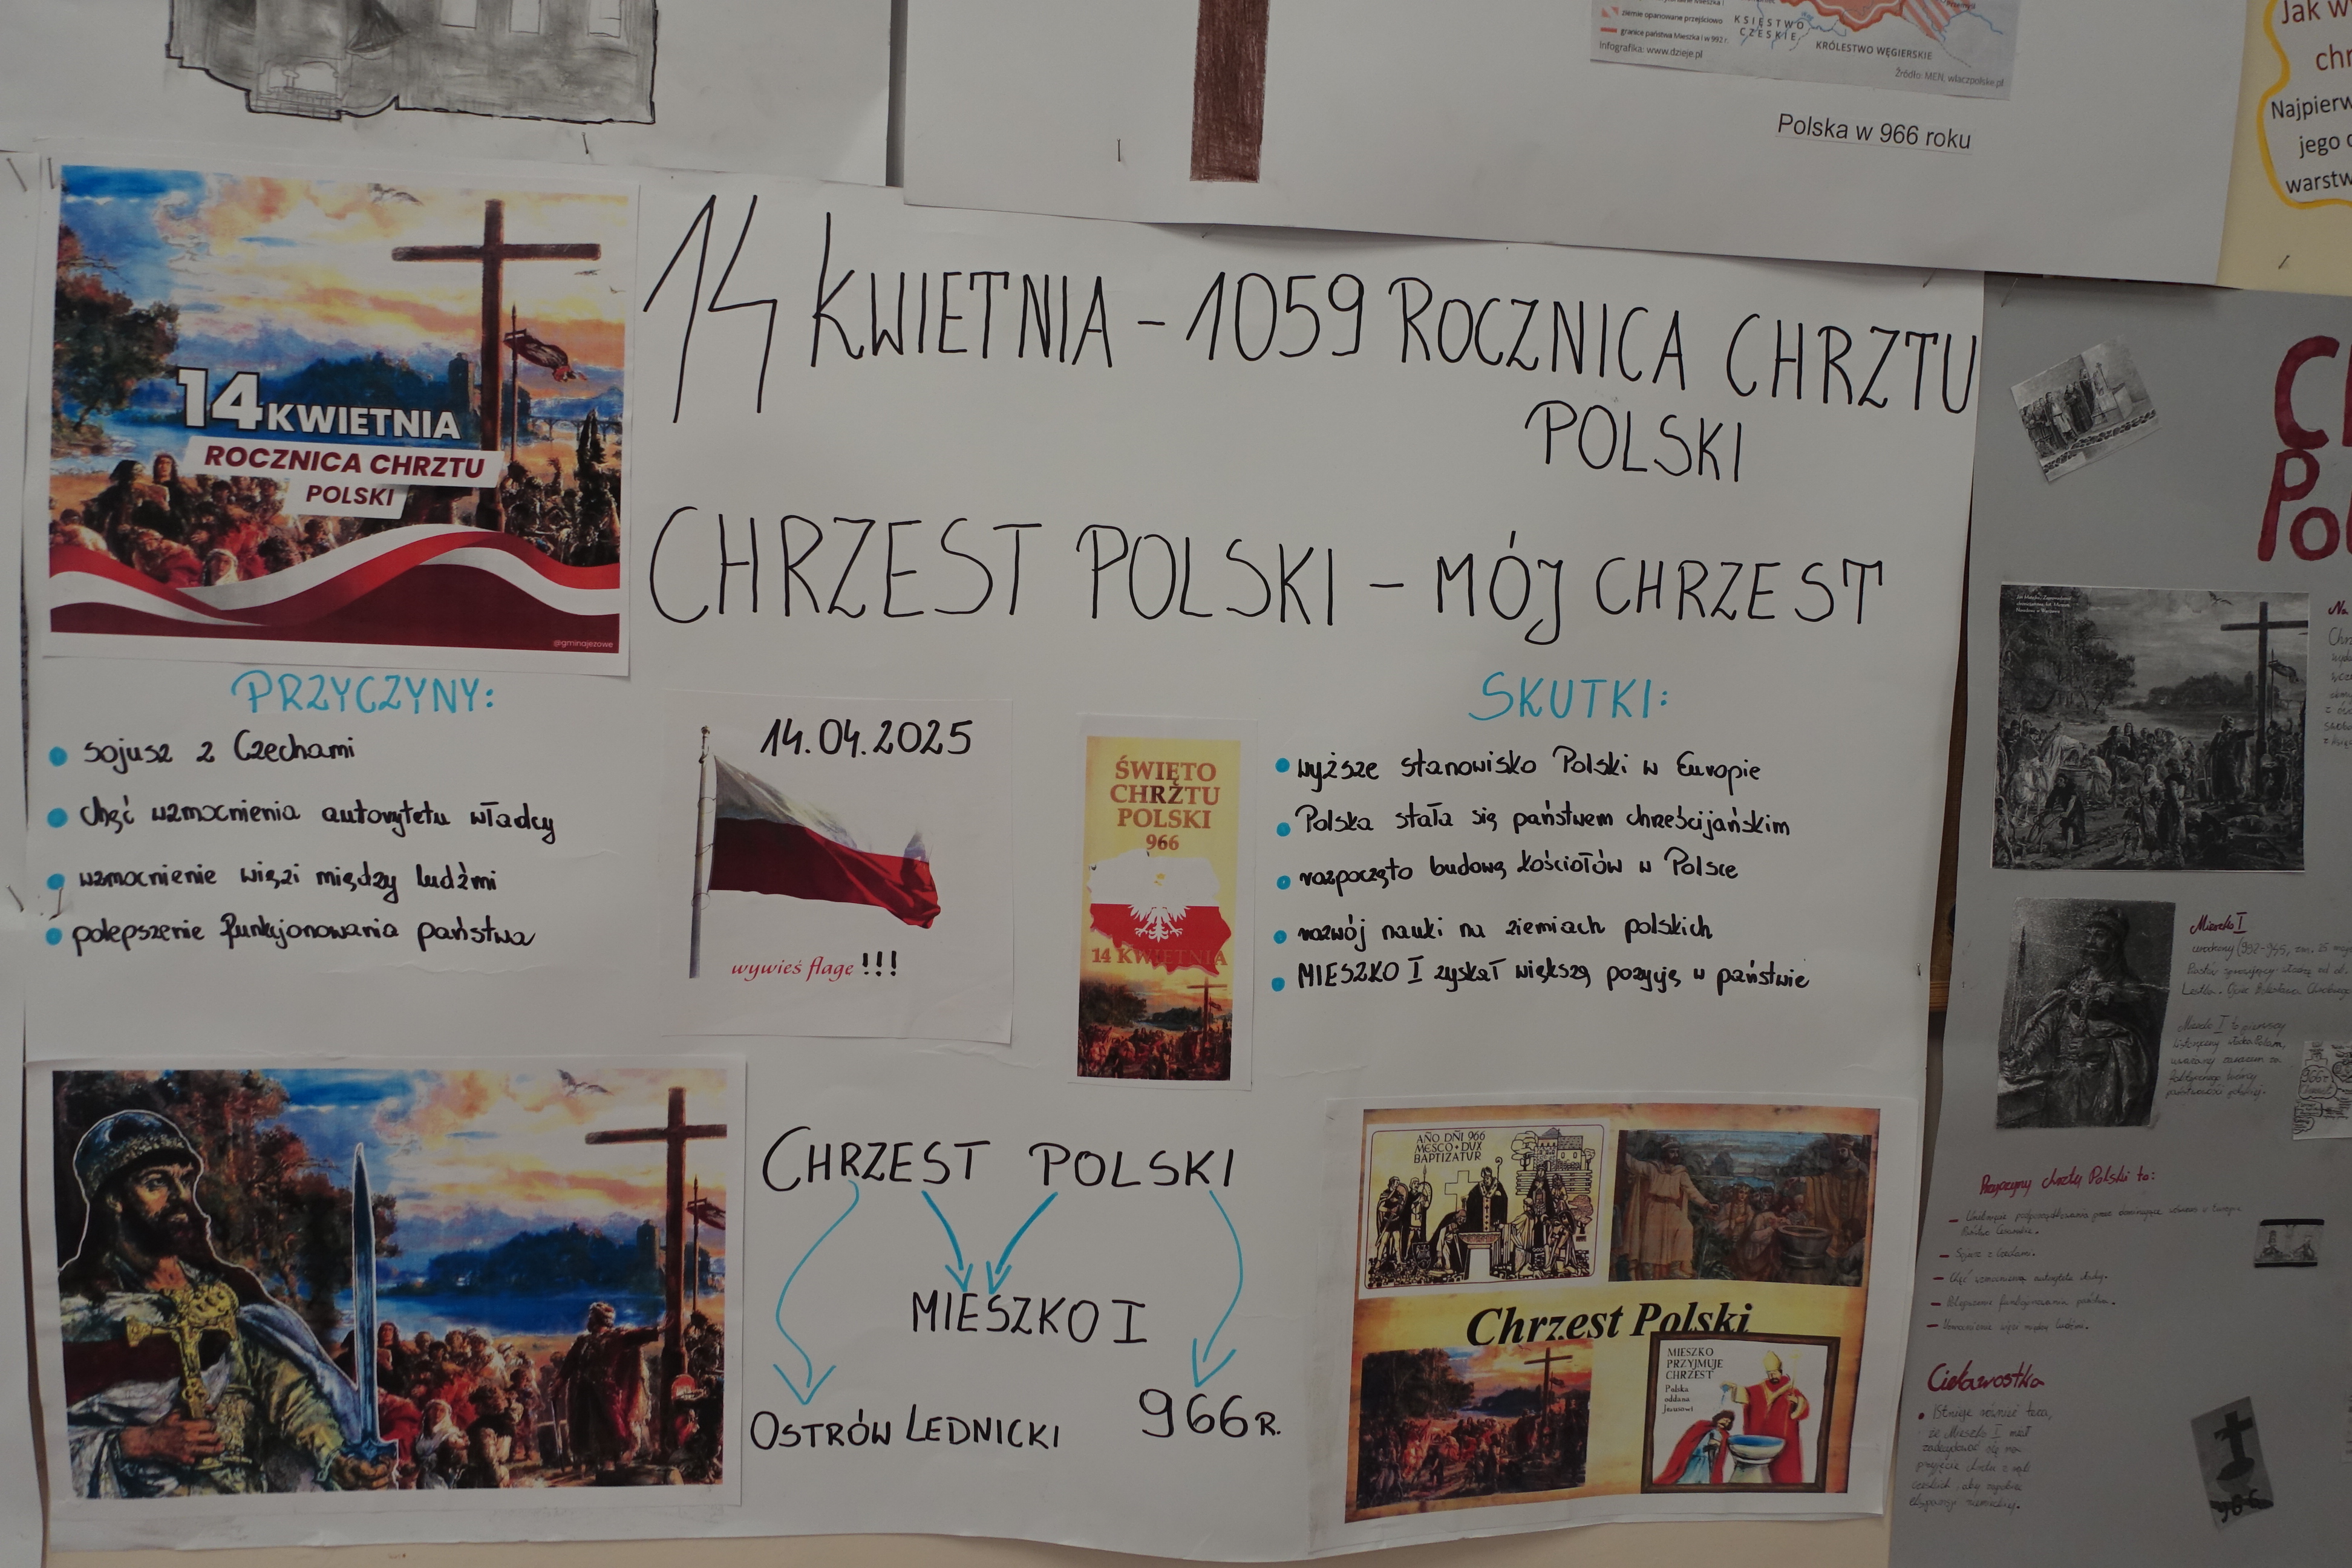 ziemie opanowane przejściowo
granice państwa Mieszka I w 992 r.
Infografika: www.dzieje.pl
KSIĘSTWO
CZESKIE
KRÓLESTWO WĘGIERSKIE
Źródło: MEN, wlaczpolske.pl
Polska w 966 roku
Jak w
chr
Najpierw
jego
warstw
14 KWIETNIA
ROCZNICA CHRZTU
POLSKI
@gminajezowe
14 KWIETNIA - 1059 ROCZNICA CHRZTU
POLSKI
CHRZEST POLSKI - MÓJ CHRZEST
PRZYCZYNY:
sojusz z Czechami
chęć wzmocnienia autorytetu władcy
wzmocnienie więzi między ludźmi
polepszenie funkjonowania państwa
14.04.2025
wywieś flage !!!
ŚWIĘTO
CHRZTU
POLSKI
966
14 KWIETNIA
SKUTKI:
wyższe stanowisko Polski w Europie
Polska stała się państwem chrześcijańskim
rozpoczęto budowę kościołów w Polsce
rozwój nauki na ziemiach polskich
MIESZKO I zyskał większą pozyję w państwie
CHRZEST POLSKI
MIESZKO I
OSTRÓW LEDNICKI
966 R.
AÑO DÑI 966
MESCO • DUX
BAPTIZATUR
Chrzest Polski
MIESZKO
PRZYJMUJE
CHRZEST
Polska
oddana
Jezusowi
Ch
Pol
Mieszko I
Mieszko I to pierwszy
Przyczyny chrztu Polski to:
- Sojusz z Czechami.
- Chęć wzmocnienia autorytetu władcy.
- Polepszenie funkcjonowania państwa.
- Wzmocnienie więzi między ludźmi.
Ciekawostka
Istnieje również teza,
że Mieszko I miał
966